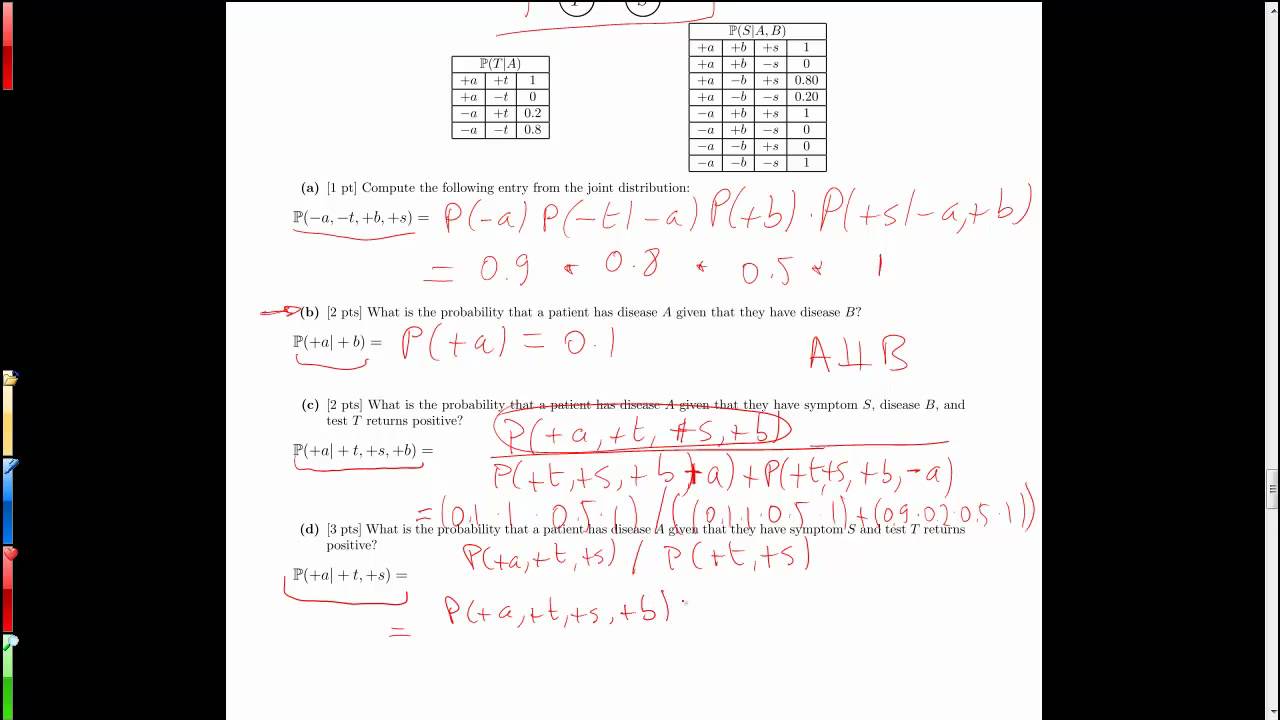 T S
P(T|A)
+a +t 1
+a −t 0
−a +t 0.2
−a −t 0.8
P(S|A, B)
+a +b +s 1
+a +b −s 0
+a −b +s 0.80
+a −b −s 0.20
−a +b +s 1
−a +b −s 0
−a −b +s 0
−a −b −s 1
(a) [1 pt] Compute the following entry from the joint distribution:
P(−a, −t, +b, +s) = P(-a) P(-t|-a) P(+b) · P(+s|-a,+b)
= 0.9 * 0.8 * 0.5 * 1
(b) [2 pts] What is the probability that a patient has disease A given that they have disease B?
P(+a| + b) = P(+a) = 0.1 A⫫B
(c) [2 pts] What is the probability that a patient has disease A given that they have symptom S, disease B, and
test T returns positive?
P(+a| + t, +s, +b) = P(+a,+t,+s,+b)
P(+t,+s,+b,+a)+P(+t,+s,+b,-a)
=(0.1·1·0.5·1)/((0.1·1·0.5·1)+(0.9·0.2·0.5·1))
(d) [3 pts] What is the probability that a patient has disease A given that they have symptom S and test T returns
positive?
P(+a| + t, +s) = P(+a,+t,+s) / P(+t,+s)
= P(+a,+t,+s,+b)